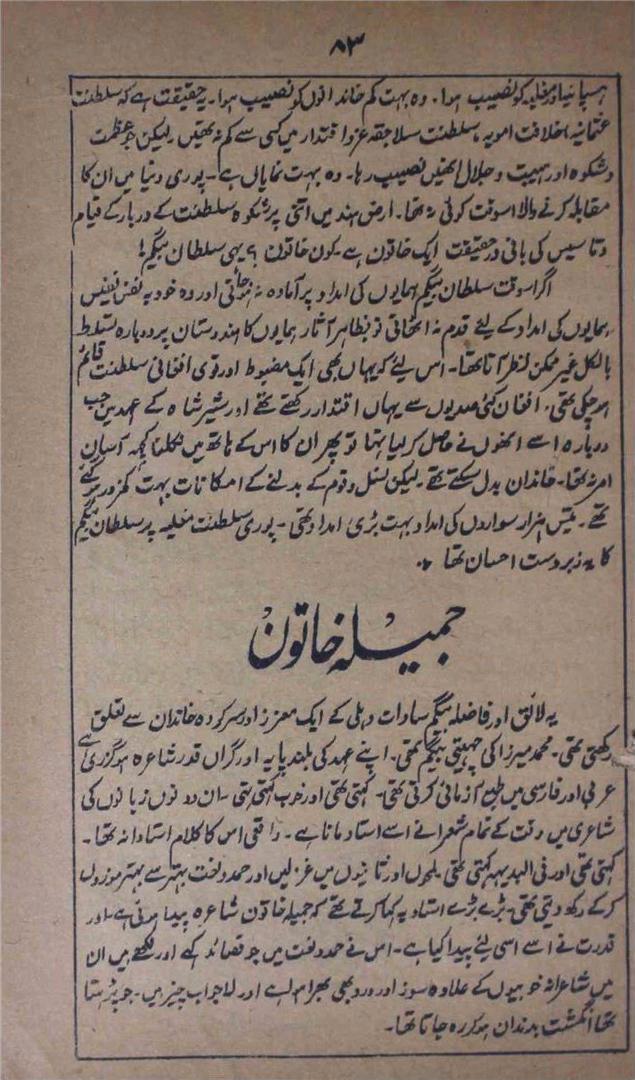 ۸۳
ہسپانیا اور مغلیہ کو نصیب ہوا۔ وہ بہت کم خاندانوں کو نصیب ہوا۔ یہ حقیقت ہے کہ سلطنت
عثمانیہ، خلافت امویہ، سلطنت سلاجقہ عزو اقتدار میں کسی سے کم نہ تھیں۔ لیکن جو عظمت
و شکوہ اور ہیبت و جلال انھیں نصیب رہا۔ وہ بہت نمایاں ہے۔ پوری دنیا میں ان کا
مقابلہ کرنے والا اسوقت کوئی نہ تھا۔ ارض ہند میں اتنی پرشکوہ سلطنت کے دربار کے قیام
و تاسیس کی بانی در حقیقت ایک خاتون ہے۔ کون خاتون؟ یہی سلطان بیگم!
اگر اسوقت سلطان بیگم ہمایوں کی امداد پر آمادہ نہ ہو جاتی اور وہ خود بہ نفس نفیس
ہمایوں کی امداد کے لیئے قدم نہ اٹھاتی تو بظاہر آثار ہمایوں کا ہندوستان پر دوبارہ تسلط
بالکل غیر ممکن نظر آتا تھا۔ اس لیئے کہ یہاں بھی ایک مضبوط اور قوی افغانی سلطنت قائم
ہو چکی تھی۔ افغان کئی صدیوں سے یہاں اقتدار رکھتے تھے اور شیر شاہ کے عہد میں جب
دوبارہ اسے انھوں نے حاصل کر لیا تھا تو پھر ان کا اس کے ہاتھ میں نکلنا کچھ آسان
امر نہ تھا۔ خاندان بدل سکتے تھے۔ لیکن نسل و قوم کے بدلنے کے امکانات بہت کمزور ہو گئے
تھے۔ تیس ہزار سواروں کی امداد بہت بڑی امداد تھی۔ پوری سلطنت مغلیہ پر سلطان بیگم
کا یہ زبردست احسان تھا۔
جمیلہ خاتون
یہ لائق اور فاضلہ بیگم سادات دہلی کے ایک معزز اور سرکردہ خاندان سے تعلق
رکھتی تھی۔ محمد میرزا کی چہیتی بیگم تھی۔ اپنے عہد کی بلند پایہ اور گراں قدر شاعرہ ہو گزری ہے
عربی اور فارسی میں طبع آزمائی کرتی تھی۔ کہتی تھی اور خوب کہتی تھی۔ ان دونوں زبانوں کی
شاعری میں وقت کے تمام شعرا نے اسے استاد مانا ہے۔ واقعی اس کا کلام استادانہ تھا۔
کہتی تھی اور فی البدیہہ کہتی تھی۔ لمحوں اور ثانیوں میں غزلیں اور حمد و نعت بہتر سے بہتر موزوں
کر کے رکھ دیتی تھی۔ بڑے بڑے استاد یہ کہا کرتے تھے کہ جمیلہ خاتون شاعرہ پیدا ہوئی ہے۔ اور
قدرت نے اسے اسی لیئے پیدا کیا ہے۔ اس نے حمد و نعت میں جو قصائد کہے اور لکھے ہیں ان
میں شاعرانہ خوبیوں کے علاوہ سوز اور درد بھی بھرا ہوا ہے اور لاجواب چیز ہیں۔ جو پڑھتا
تھا انگشت بدندان ہو کر رہ جاتا تھا۔